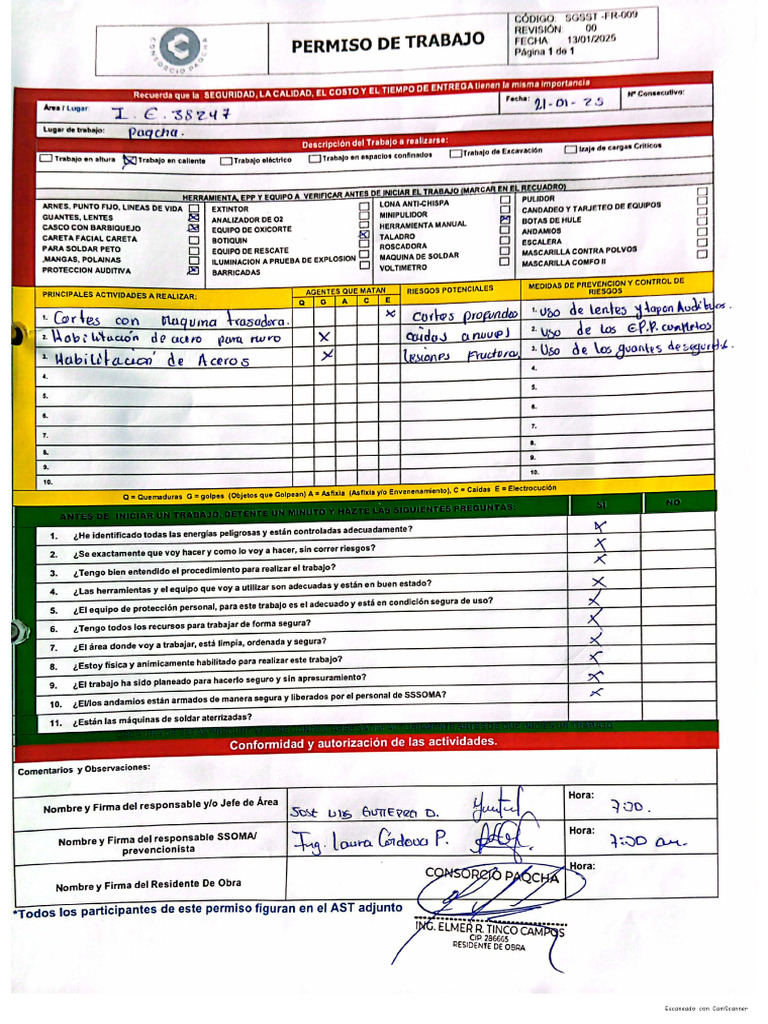 CONSORCIO PAQCHA
PERMISO DE TRABAJO
CÓDIGO: SGSST -FR-009
REVISIÓN: 00
FECHA: 13/01/2025
Página 1 de 1
Recuerda que la SEGURIDAD, LA CALIDAD, EL COSTO Y EL TIEMPO DE ENTREGA tienen la misma importancia
Área / Lugar: I. E. 38247
Fecha: 21-01-25
Nº Consecutivo:
Lugar de trabajo: Paqcha.
Descripción del Trabajo a realizarse:
Trabajo en altura Trabajo en caliente Trabajo eléctrico Trabajo en espacios confinados Trabajo de Excavación Izaje de cargas Críticos
HERRAMIENTA, EPP Y EQUIPO A VERIFICAR ANTES DE INICIAR EL TRABAJO (MARCAR EN EL RECUADRO)
ARNES, PUNTO FIJO, LINEAS DE VIDA
GUANTES, LENTES
CASCO CON BARBIQUEJO
CARETA FACIAL CARETA
PARA SOLDAR PETO
,MANGAS, POLAINAS
PROTECCION AUDITIVA
EXTINTOR
ANALIZADOR DE O2
EQUIPO DE OXICORTE
BOTIQUIN
EQUIPO DE RESCATE
ILUMINACION A PRUEBA DE EXPLOSION
BARRICADAS
LONA ANTI-CHISPA
MINIPULIDOR
HERRAMIENTA MANUAL
TALADRO
ROSCADORA
MAQUINA DE SOLDAR
VOLTIMETRO
PULIDOR
CANDADEO Y TARJETEO DE EQUIPOS
BOTAS DE HULE
ANDAMIOS
ESCALERA
MASCARILLA CONTRA POLVOS
MASCARILLA COMFO II
PRINCIPALES ACTIVIDADES A REALIZAR:
AGENTES QUE MATAN
Q G A C E
RIESGOS POTENCIALES
MEDIDAS DE PREVENCION Y CONTROL DE RIESGOS
1. Cortes con Maquina trasadora. x cortes profundos 1. Uso de lentes y tapon Auditivos.
2. Habilitación de acero para muro x caidas 2. Uso de los E.P.P. completos
3. Habilitación de Aceros x lesiones 3. Uso de los guantes de
4. 4.
5. 5.
6. 6.
7. 7.
8. 8.
9. 9.
10. 10.
Q = Quemaduras G = golpes (Objetos que Golpean) A = Asfixia (Asfixia y/o Envenenamiento), C = Caidas E = Electrocución
ANTES DE INICIAR UN TRABAJO, DETENTE UN MINUTO Y HAZTE LAS SIGUIENTES PREGUNTAS: SI NO
1. ¿He identificado todas las energías peligrosas y están controladas adecuadamente? x
2. ¿Se exactamente que voy hacer y como lo voy a hacer, sin correr riesgos? x
3. ¿Tengo bien entendido el procedimiento para realizar el trabajo? x
4. ¿Las herramientas y el equipo que voy a utilizar son adecuadas y están en buen estado? x
5. ¿El equipo de protección personal, para este trabajo es el adecuado y está en condición segura de uso? x
6. ¿Tengo todos los recursos para trabajar de forma segura? x
7. ¿El área donde voy a trabajar, está limpia, ordenada y segura? x
8. ¿Estoy física y anímicamente habilitado para realizar este trabajo? x
9. ¿El trabajo ha sido planeado para hacerlo seguro y sin apresuramiento? x
10. ¿El/los andamios están armados de manera segura y liberados por el personal de SSSOMA? x
11. ¿Están las máquinas de soldar aterrizadas?
Conformidad y autorización de las actividades.
Comentarios y Observaciones:
Nombre y Firma del responsable y/o Jefe de Área JOSE LUIS GUTIERRO D. Hora: 7:00.
Nombre y Firma del responsable SSOMA/ prevencionista Ing. Laura Córdova P. Hora: 7:00 am.
Nombre y Firma del Residente De Obra Hora:
CONSORCIO PAQCHA
*Todos los participantes de este permiso figuran en el AST adjunto
ING. ELMER R. TINCO CAMPOS
CIP. 286665
RESIDENTE DE OBRA
Escaneado con CamScanner